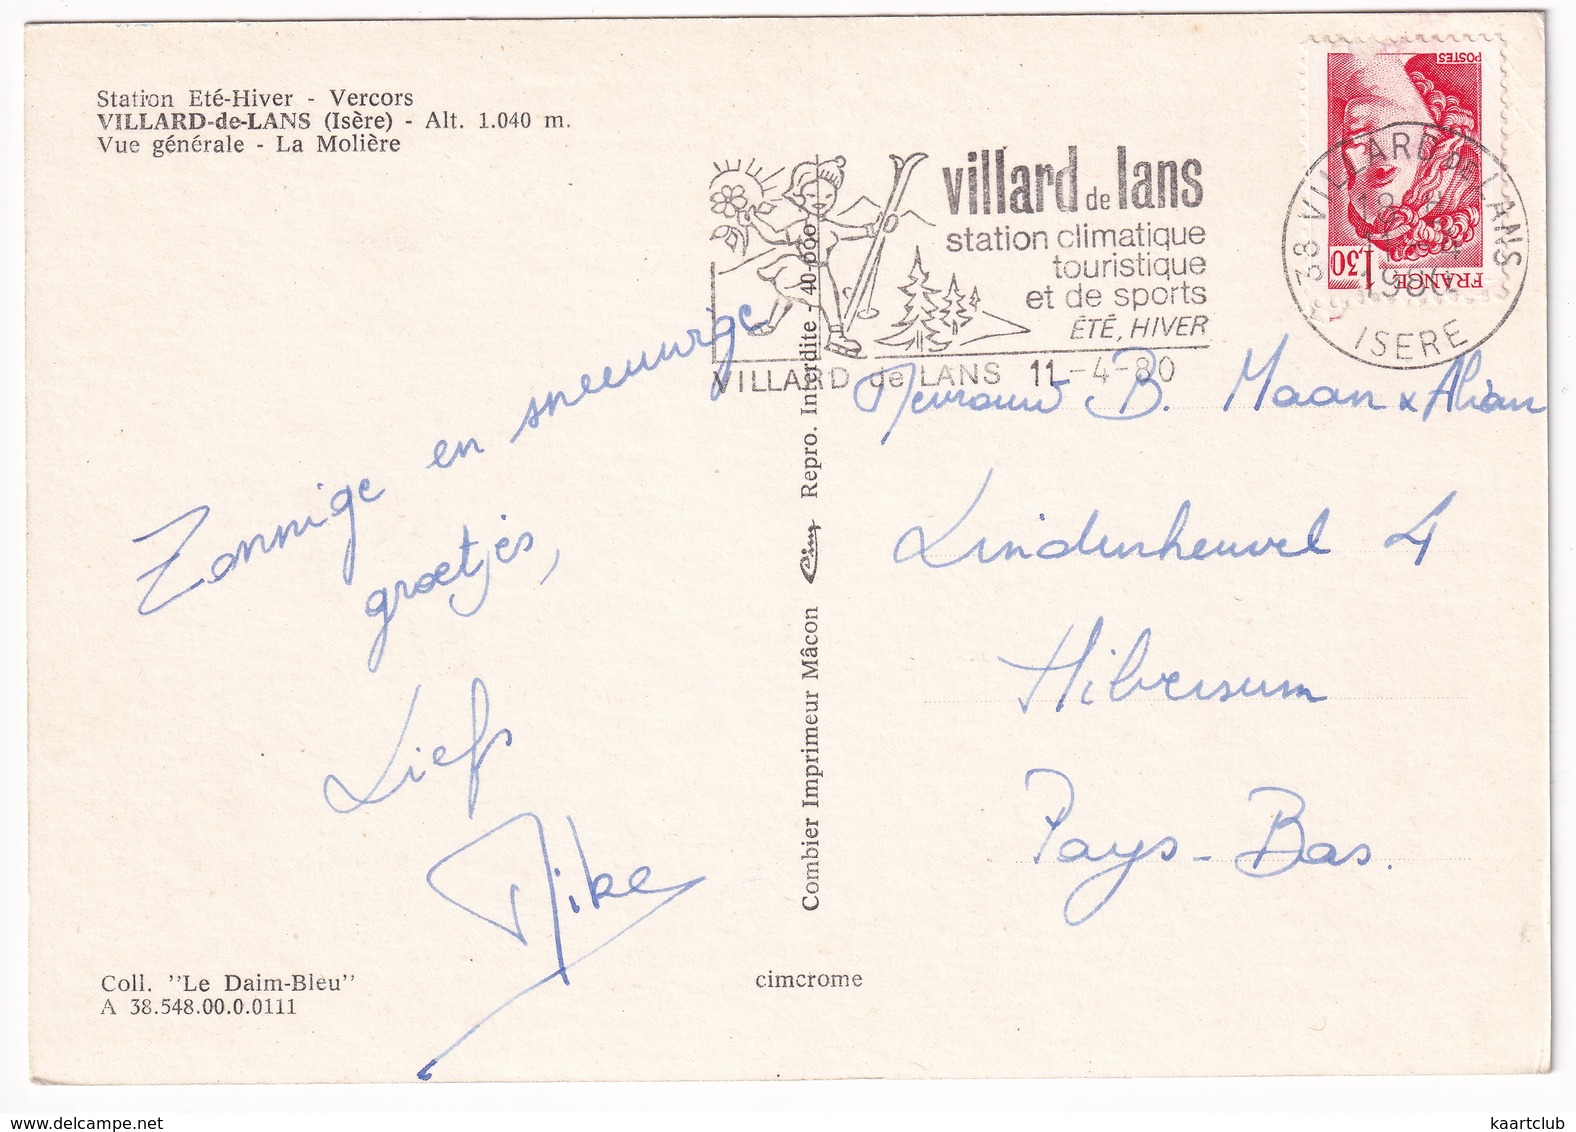 Station Eté-Hiver - Vercors
VILLARD-de-LANS (Isère) - Alt. 1.040 m.
Vue générale - La Molière
villard de lans
station climatique
touristique
et de sports
ÉTÉ, HIVER
VILLARD de LANS 11-4-80
38 VILLARD DE LANS
1980
ISERE
POSTES
1,30
FRANCE
Zonnige en sneeuwige
groetjes,
Liefs
Mevrouw B. Maan
Lindenheuvel 4
Hilversum
Pays-Bas.
Combier Imprimeur Mâcon Cim Repro. Interdite - 40-000
Coll. "Le Daim-Bleu"
A 38.548.00.0.0111
cimcrome
www.delcampe.net
kaartclub